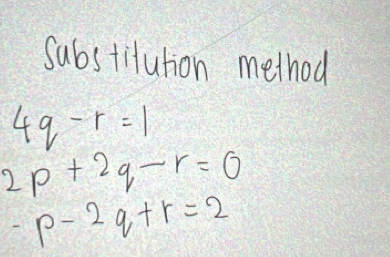 Substitution method
4q - r = 1
2p + 2q - r = 0
-p - 2q + r = 2